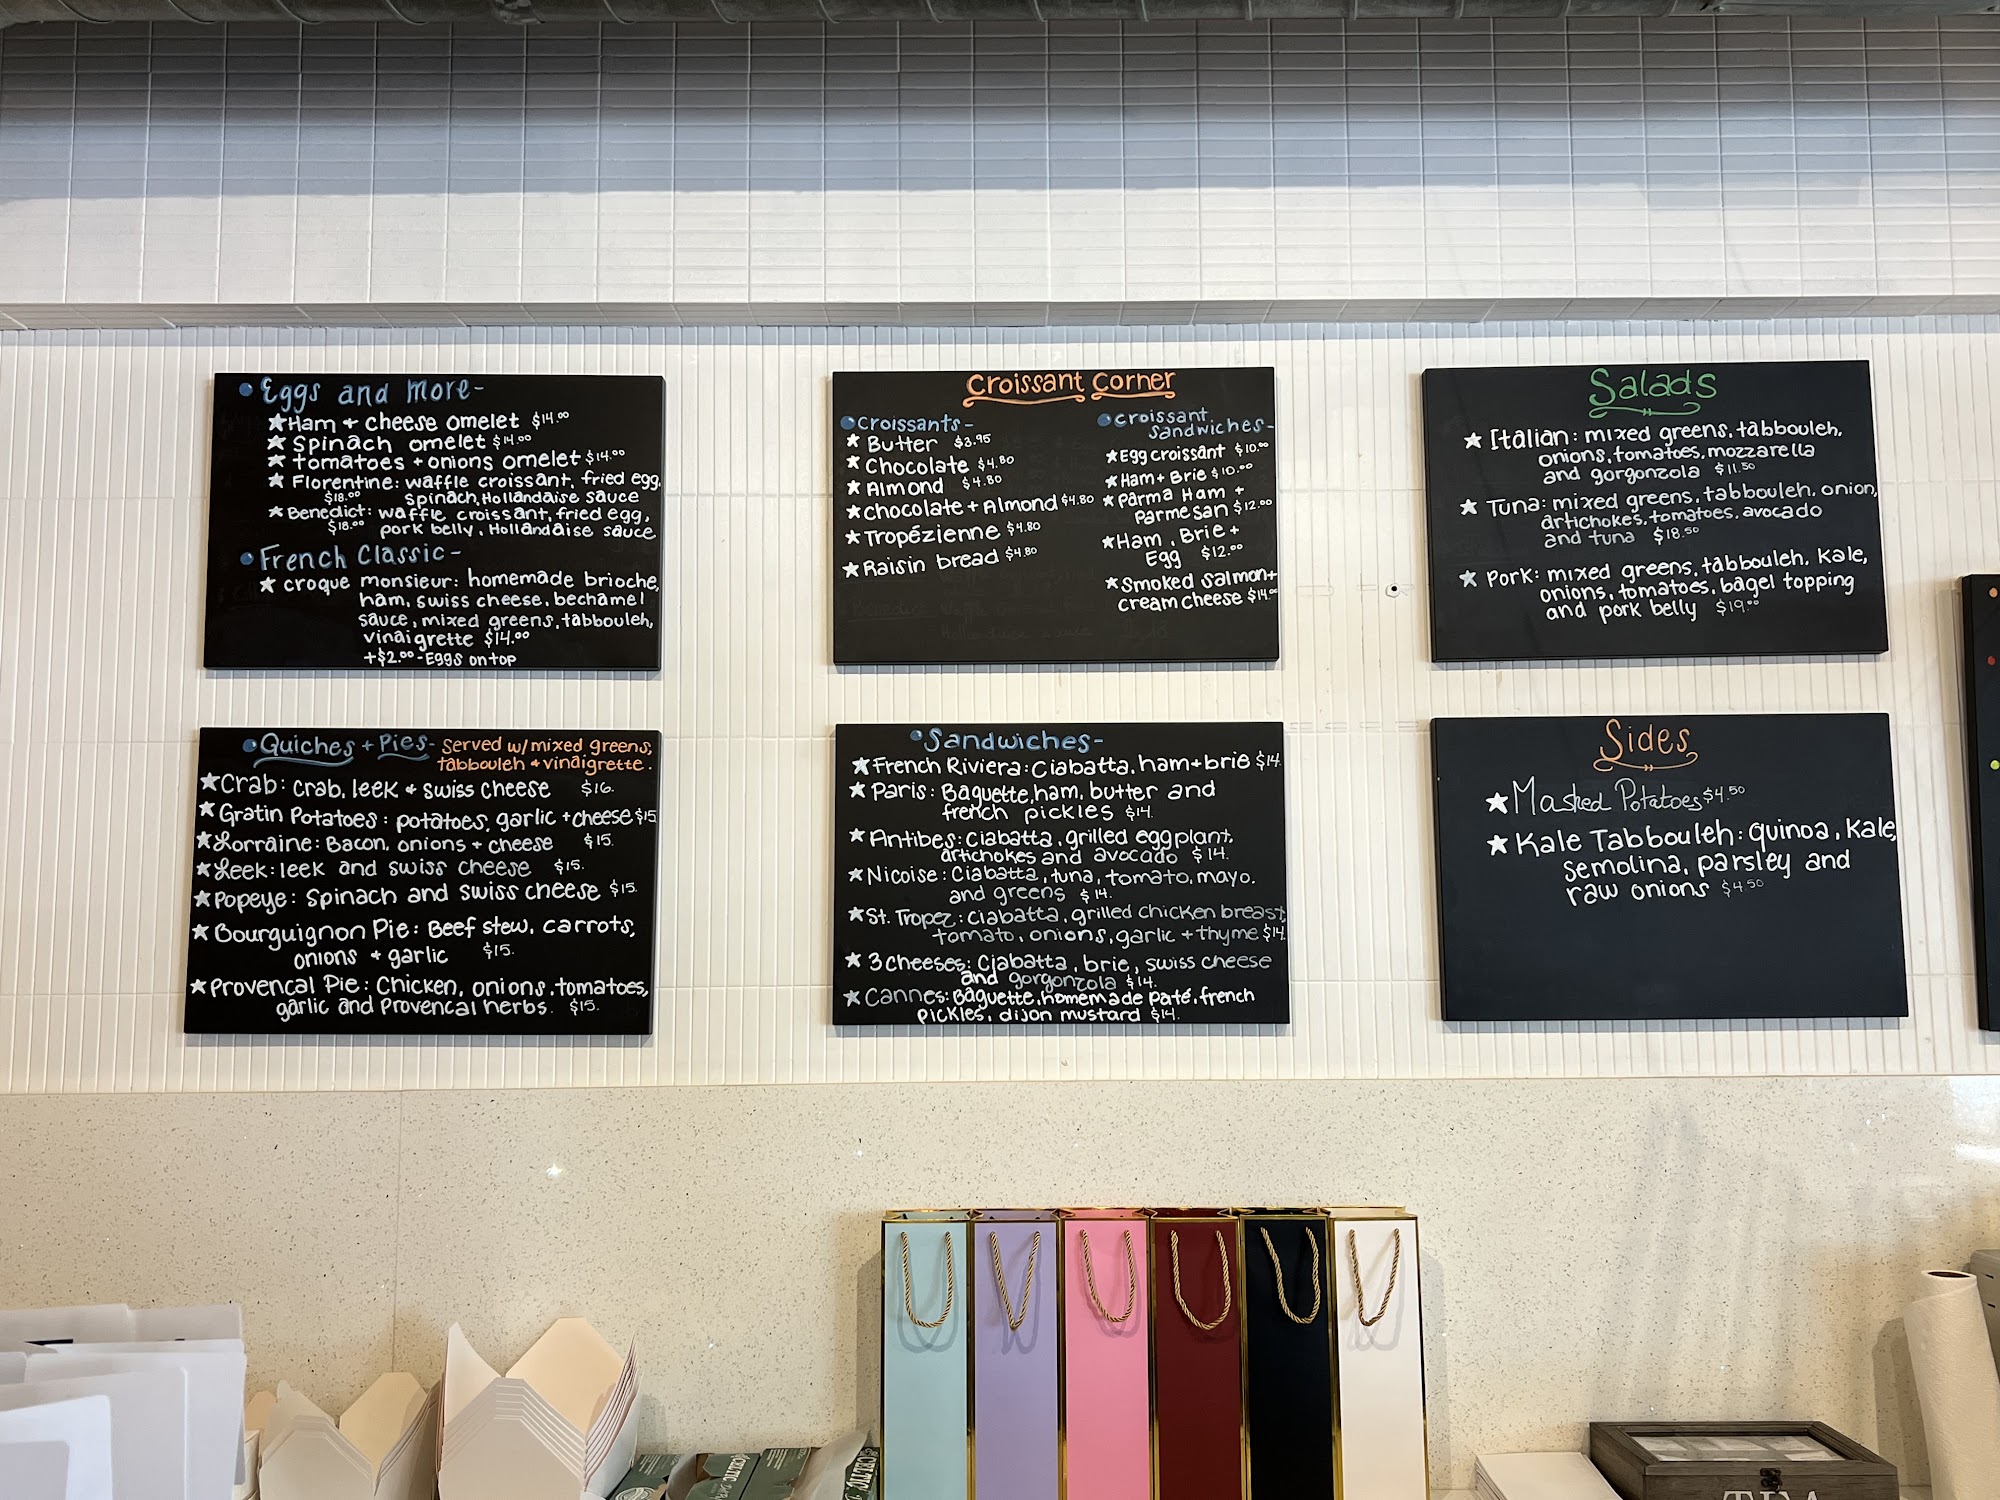 Eggs and more-
Ham + cheese omelet $14.00
Spinach omelet $14.00
tomatoes + onions omelet $14.00
Florentine: waffle croissant, fried egg,
$18.00 spinach, Hollandaise sauce
Benedict: waffle croissant, fried egg,
$18.00 pork belly, Hollandaise sauce
French Classic-
croque monsieur: homemade brioche,
ham, swiss cheese, bechamel
sauce, mixed greens, tabbouleh,
vinaigrette $14.00
+$2.00-Eggs on top
Croissant Corner
Croissants-
Butter $3.95
Chocolate $4.80
Almond $4.80
Chocolate + Almond $4.80
Tropézienne $4.80
Raisin bread $4.80
croissant
sandwiches-
Egg croissant $10.00
Ham + Brie $10.00
Parma Ham +
Parmesan $12.00
Ham, Brie +
Egg $12.00
Smoked salmon +
cream cheese $14.00
Salads
Italian: mixed greens, tabbouleh,
onions, tomatoes, mozzarella
and gorgonzola $11.50
Tuna: mixed greens, tabbouleh, onion,
artichokes, tomatoes, avocado
and tuna $18.50
Pork: mixed greens, tabbouleh, kale,
onions, tomatoes, bagel topping
and pork belly $19.00
Quiches + Pies- Served w/ mixed greens,
tabbouleh + vinaigrette.
Crab: crab, leek + swiss cheese $16.
Gratin Potatoes: potatoes, garlic + cheese $15
Lorraine: Bacon, onions + cheese $15.
Leek: leek and swiss cheese $15.
Popeye: Spinach and swiss cheese $15.
Bourguignon Pie: Beef stew, carrots,
onions + garlic $15.
Provencal Pie: Chicken, onions, tomatoes,
garlic and Provencal herbs. $15.
Sandwiches-
French Riviera: Ciabatta, ham + brie $14.
Paris: Baguette, ham, butter and
french pickles $14.
Antibes: Ciabatta, grilled eggplant,
artichokes and avocado $14.
Nicoise: Ciabatta, tuna, tomato, mayo.
and greens $14.
St. Tropez: ciabatta, grilled chicken breast,
tomato, onions, garlic + thyme $14
3 cheeses: Ciabatta, brie, swiss cheese
and gorgonzola $14.
Cannes: Baguette, homemade paté, french
pickles, dijon mustard $14.
Sides
Mashed Potatoes $4.50
Kale Tabbouleh: quinoa, kale,
semolina, parsley and
raw onions $4.50
CELTIC
TEA